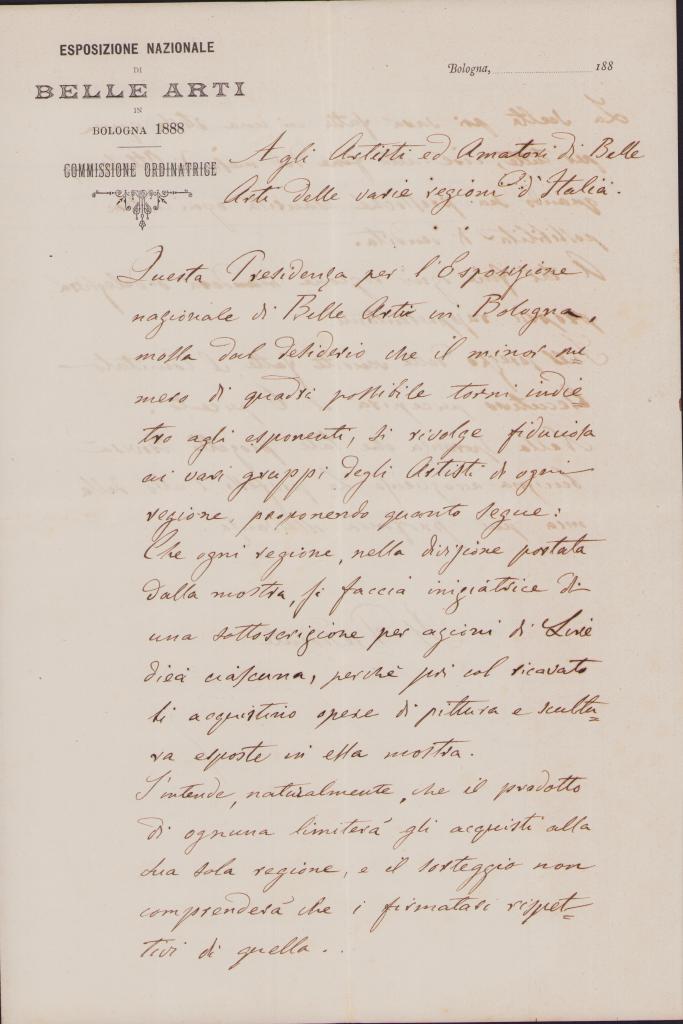 ESPOSIZIONE NAZIONALE
DI
BELLE ARTI
IN
BOLOGNA 1888
COMMISSIONE ORDINATRICE
Bologna, 188
Agli Artisti ed Amatori di Belle
Arti delle varie regioni d'Italia.
Questa Presidenza per l'Esposizione
nazionale di Belle Arti in Bologna,
mossa dal desiderio che il minor nu
mero di quadri possibile torni indie
tro agli esponenti, si rivolge fiduciosa
ai vari gruppi degli Artisti di ogni
regione, proponendo quanto segue:
Che ogni regione, nella divisione portata
dalla mostra, si faccia iniziatrice di
una sottoscrizione per azioni di Lire
dieci ciascuna, perchè poi col ricavato
si acquistino opere di pittura e scultu=
ra esposte in essa mostra.
S'intende, naturalmente, che il prodotto
di ognuna limiterà gli acquisti alla
sua sola regione, e il sorteggio non
comprenderà che i firmatari rispet=
tivi di quella..